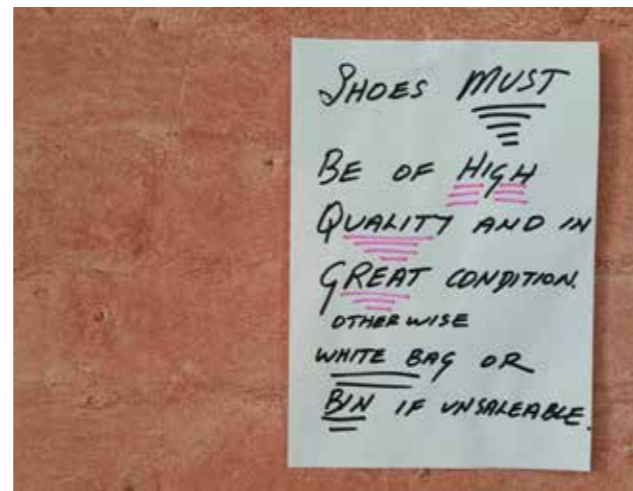 SHOES MUST
BE OF HIGH
QUALITY AND IN
GREAT CONDITION.
OTHERWISE
WHITE BAG OR
BIN IF UNSALEABLE.